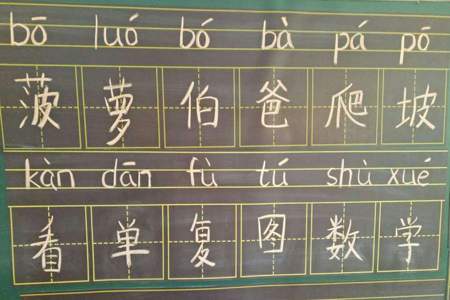 bō luó bó bà pá pō
菠萝伯爸爬坡
kàn dān fù tú shù xué
看单复图数学